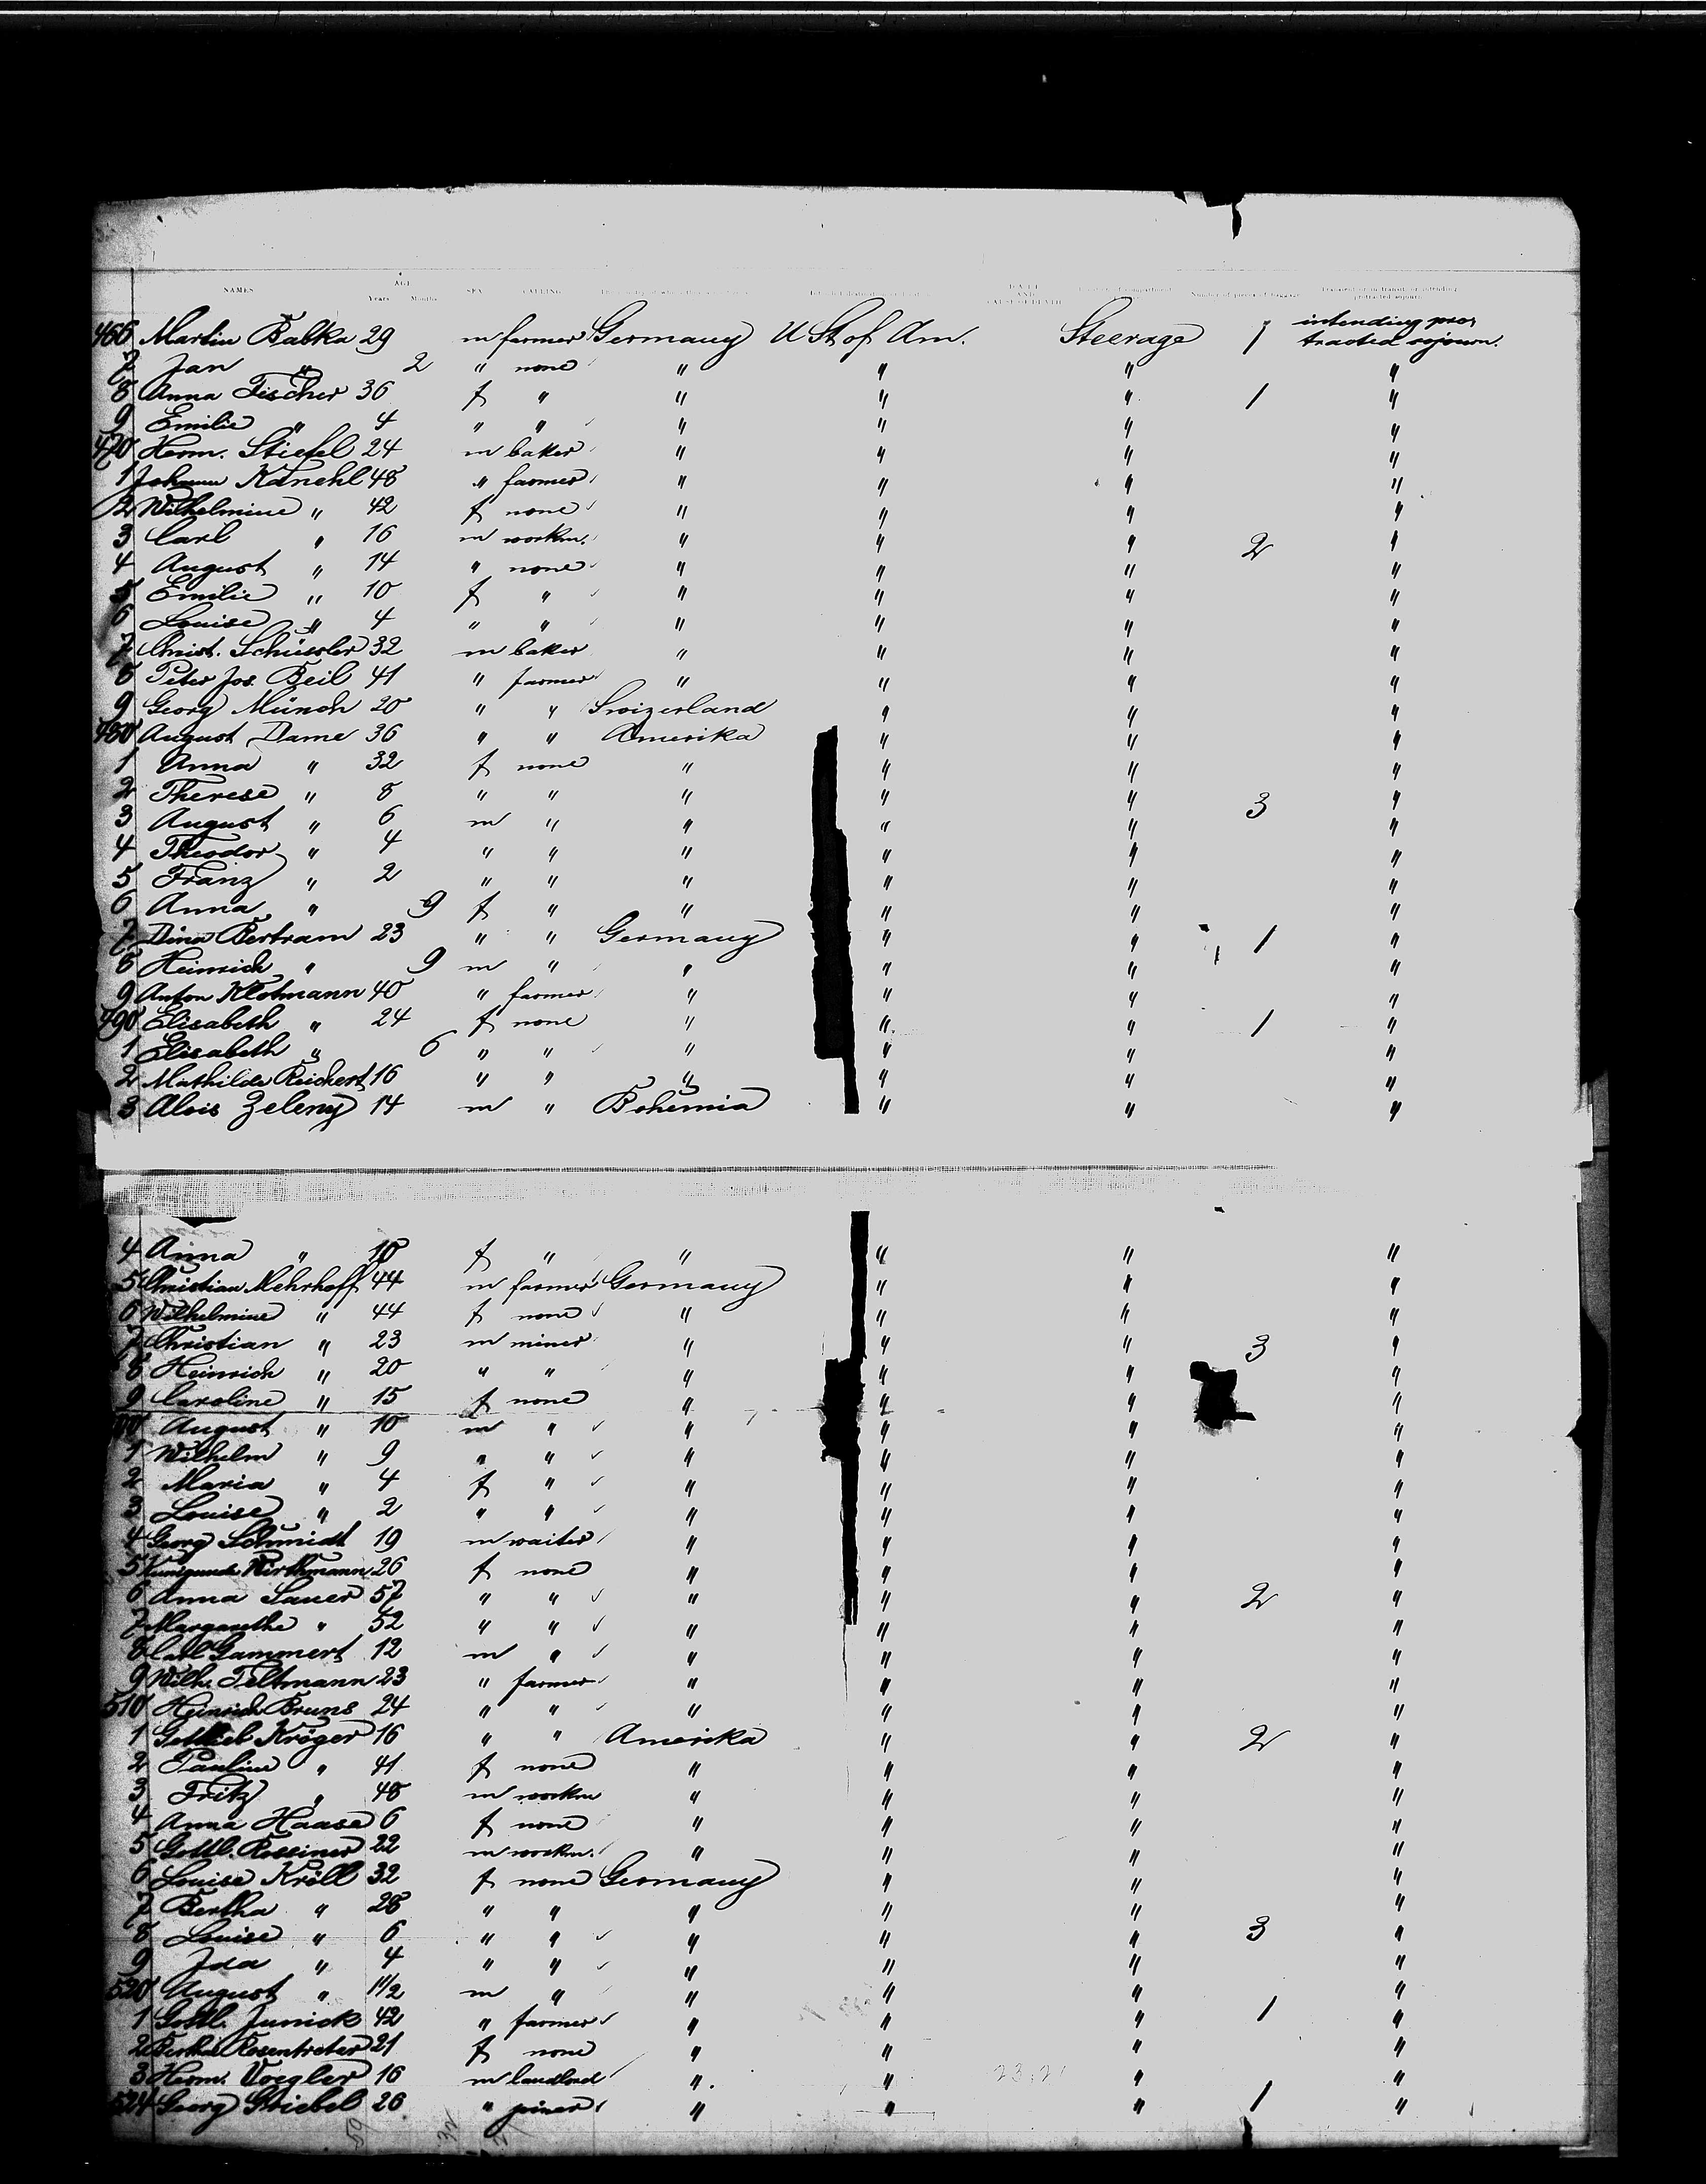 NAMES AGE Years Months SEX CALLING CAUSE OF DEATH
466 Martin Balka 29 m farmer Germany U St of Am. Steerage 1 intending pro-
tracted sojourn.
7 Jan " 2 " none " " " "
8 Anna Fischer 36 f " " " " 1 "
9 Emilie " 4 " " " " " "
470 Herm. Stiefel 24 m baker " " " "
1 Johann Kanehl 48 " farmer " " " "
2 Wilhelmine " 42 f none " " " "
3 Carl " 16 m workm. " " " 2 "
4 August " 14 " none " " " "
5 Emilie " 10 f " " " " "
6 Louise " 4 " " " " " "
7 Christ. Schüssler 32 m baker " " " "
8 Peter Jos. Beil 41 " farmer " " " "
9 Georg Münch 20 " " Swizerland " " "
480 August Dame 36 " " Amerika " " "
1 Anna " 32 f none " " " "
2 Therese " 8 " " " " " 3 "
3 August " 6 m " " " " "
4 Theodor " 4 " " " " " "
5 Franz " 2 " " " " " "
6 Anna " 9 f " " " " "
7 Dina Bertram 23 " " Germany " " 1 "
8 Heinrich " 9 m " " " " "
9 Anton Klotmann 40 " farmer " " " "
490 Elisabeth " 24 f none " " " 1 "
1 Elisabeth " 6 " " " " " "
2 Mathilde Reichert 16 " " " " " "
3 Alois Zeleny 14 m " Bohemia " " "
4 Anna " 10 f " " " " "
5 Christian Mehrhoff 44 m farmer Germany " " "
6 Wilhelmine " 44 f none " " " "
7 Christian " 23 m miner " " " 3 "
8 Heinrich " 20 " " " " " "
9 Caroline " 15 f none " " " "
August " 10 m " " " " "
1 Wilhelm " 9 " " " " " "
2 Maria " 4 f " " " " "
3 Louise " 2 " " " " " "
4 Georg Schmidt 19 m waiter " " " "
5 Kunigunde Wirthmann 26 f none " " " "
6 Anna Sauer 57 " " " " " 2 "
7 Margarethe " 52 " " " " " "
8 Carl Gammert 12 m " " " " "
9 Wilh. Feltmann 23 " farmer " " " "
510 Heinrich Bruns 24 " " " " " "
1 Gottlieb Kröger 16 " " Amerika " " 2 "
2 Pauline " 41 f none " " " "
3 Fritz " 48 m workm " " " "
4 Anna Haase 6 f none " " " "
5 Gottl. Rossiner 22 m workm. " " " "
6 Louise Kröll 32 f none Germany " " "
7 Bertha " 28 " " " " " "
8 Louise " 6 " " " " " 3 "
9 Ida " 4 " " " " " "
520 August " 11/2 m " " " " "
1 Gottl. Junick 42 " farmer " " " 1 "
2 Bertha Rosentreter 21 f none " " " "
3 Herm. Voegler 16 m landlord " " " "
524 Georg Griebel 26 " joiner " " " 1 "